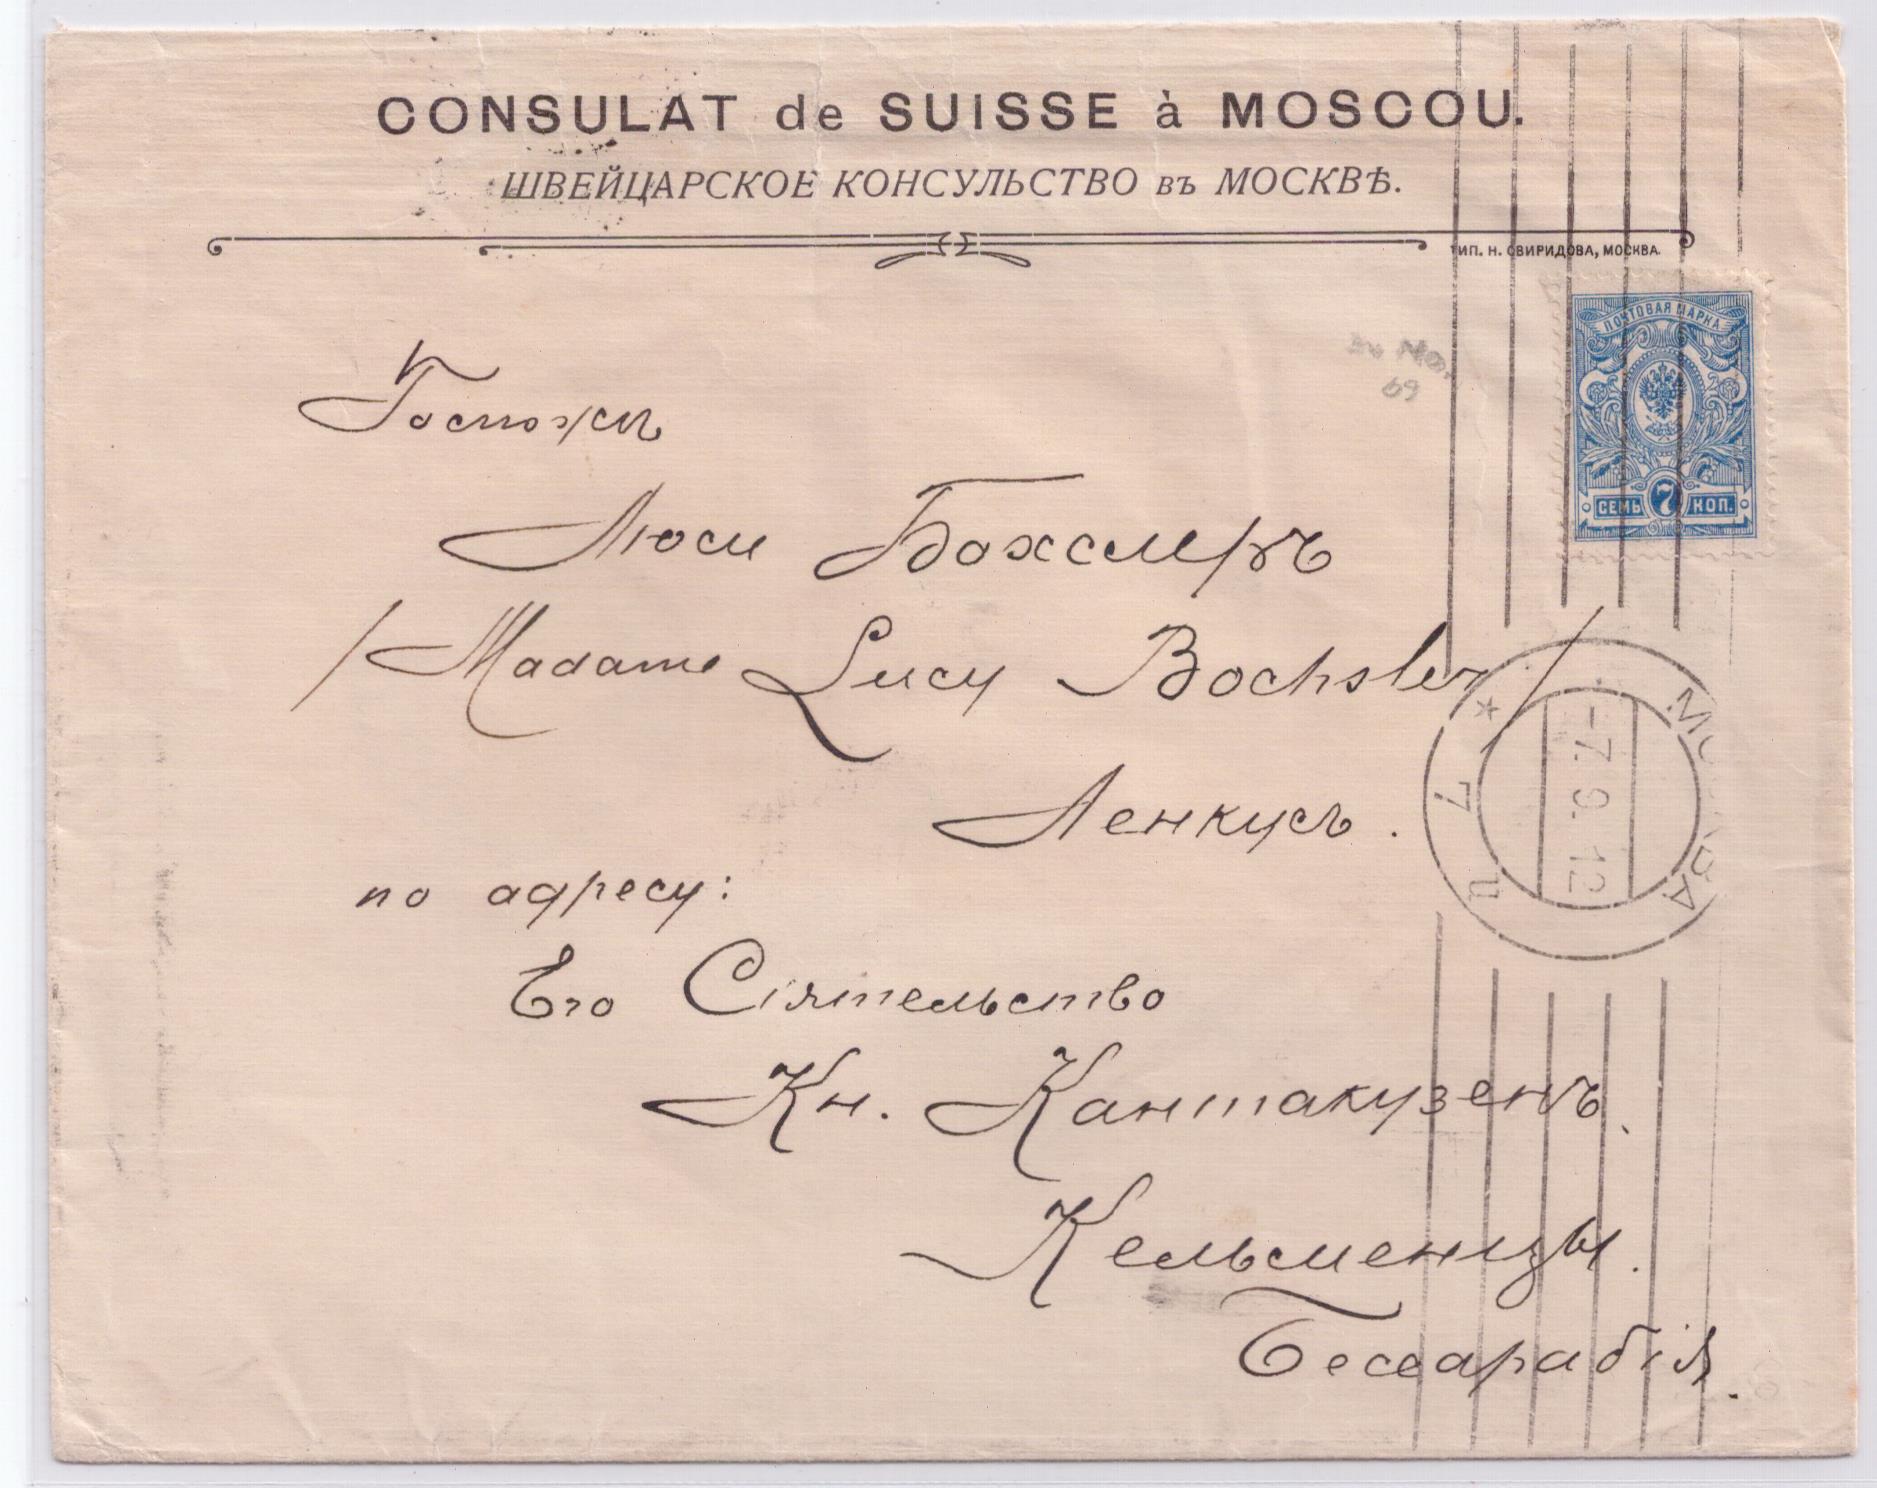 CONSULAT de SUISSE à MOSCOU.
ШВЕЙЦАРСКОЕ КОНСУЛЬСТВО въ МОСКВѢ.
ТИП. Н. СВИРИДОВА, МОСКВА.
ПОЧТОВАЯ МАРКА
СЕМЬ 7 КОП.
Госпожѣ
Люси Бохслеръ
/Madame Lucy Bochsler/
Ленкусъ.
по адресу:
Его Сіятельство
Кн. Кантакузенъ.
Кельменцы.
Бессарабія.
МОСКВА
-7.9.12
* 7 п